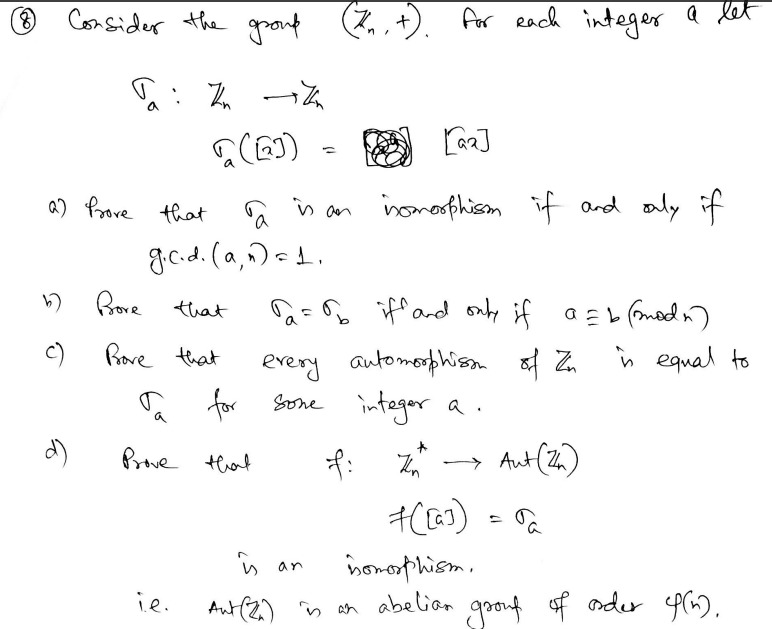 ⑧ Consider the group (ℤₙ, +). For each integer a let
σₐ : ℤₙ → ℤₙ
σₐ([x]) = [ax]
a) Prove that σₐ is an isomorphism if and only if
g.c.d.(a,n) = 1.
b) Prove that σₐ = σ_b iff and only if a ≡ b (mod n)
c) Prove that every automorphism of ℤₙ is equal to
σₐ for some integer a.
d) Prove that f: ℤₙ* → Aut(ℤₙ)
f([a]) = σₐ
is an isomorphism.
i.e. Aut(ℤₙ) is an abelian group of order φ(n).